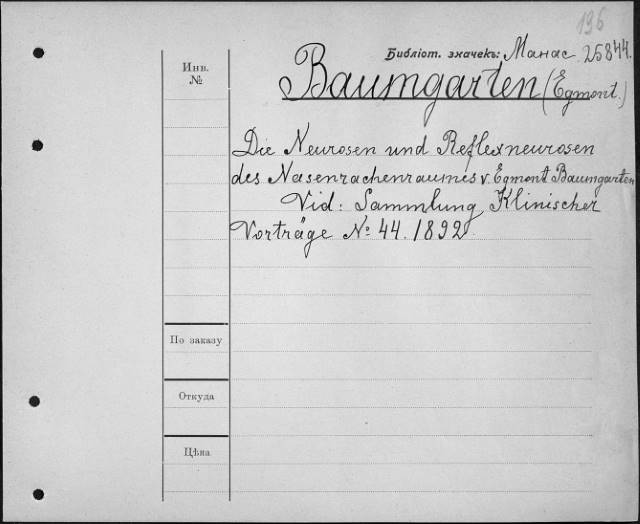 196
Библіот. значекъ: Манас 25844.
Инв.
№
Baumgarten (Egmont.)
Die Neurosen und Reflexneurosen
des Nasenrachenraumes v. Egmont Baumgarten
Vid: Sammlung Klinischer
Vorträge № 44. 1892
По заказу
Откуда
Цѣна